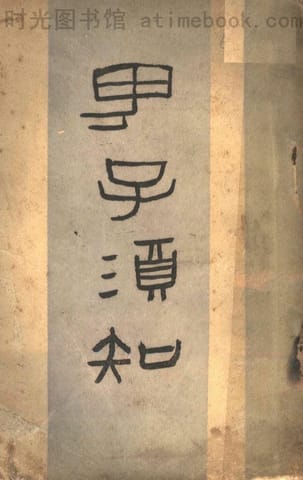 时光图书馆 atimebook.com
男子須知